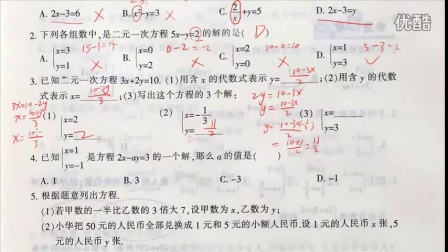 优酷
A. 2x-3=6 B. x²-y=3 C. 2/x+y=5 D. 2x-3=y
X X X
2. 下列各组数中,是二元一次方程 5x-y=2 的解的是( D )
A. {x=3 y=1 B. {x=0 y=2 C. {x=2 y=0 D. {x=1 y=3
15-1=14 0-2=-2 10-0=10 5-3=2
X X X ✓
3. 已知二元一次方程 3x+2y=10. (1)用含 x 的代数式表示 y= 10-3x/2 ;(2)用含 y 的代数
式表示 x= 10-2y/3 ;(3)写出这个方程的 3 个解:
3x=10-2y
x=10-2y/3
2y=10-3x
y=10-3x/2
(1) {x=2 y= 2 (2) {x=-1/3 y= 11/2 (3) {x= y=3
=10+1/2=11/2
4. 已知{x=1 y=-1 是方程 2x-ay=3 的一个解,那么 a 的值是( )
A. 1 B. 3 C. -3 D. -1
5. 根据题意列出方程.
(1)若甲数的一半比乙数的 3 倍大 7,设甲数为 x,乙数为 y;
(2)小华把 50 元的人民币全部兑换成 1 元和 5 元的小额人民币,设 1 元的人民币 x 张,5
元的人民币 y 张.